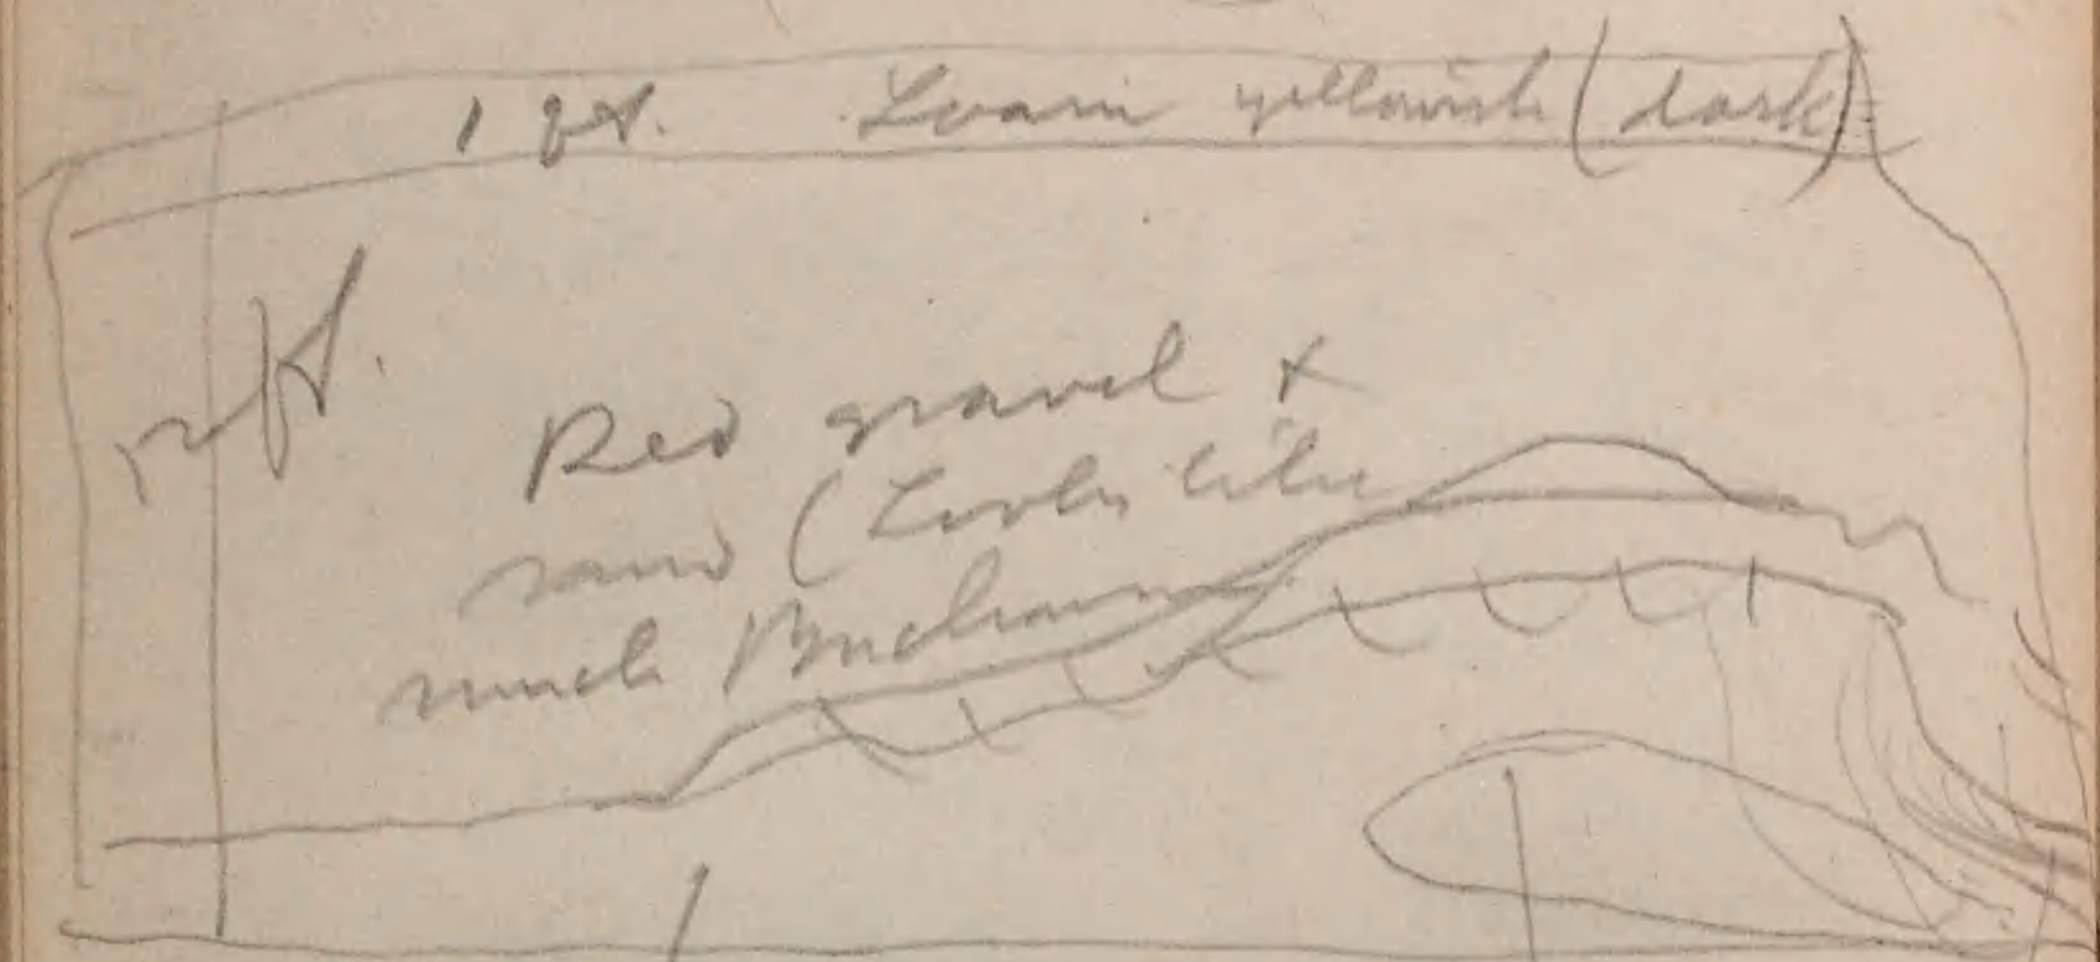 1 ft. Loam yellowish (dark)
12 ft.
Red gravel &
sand (Looks like
much Buchanan